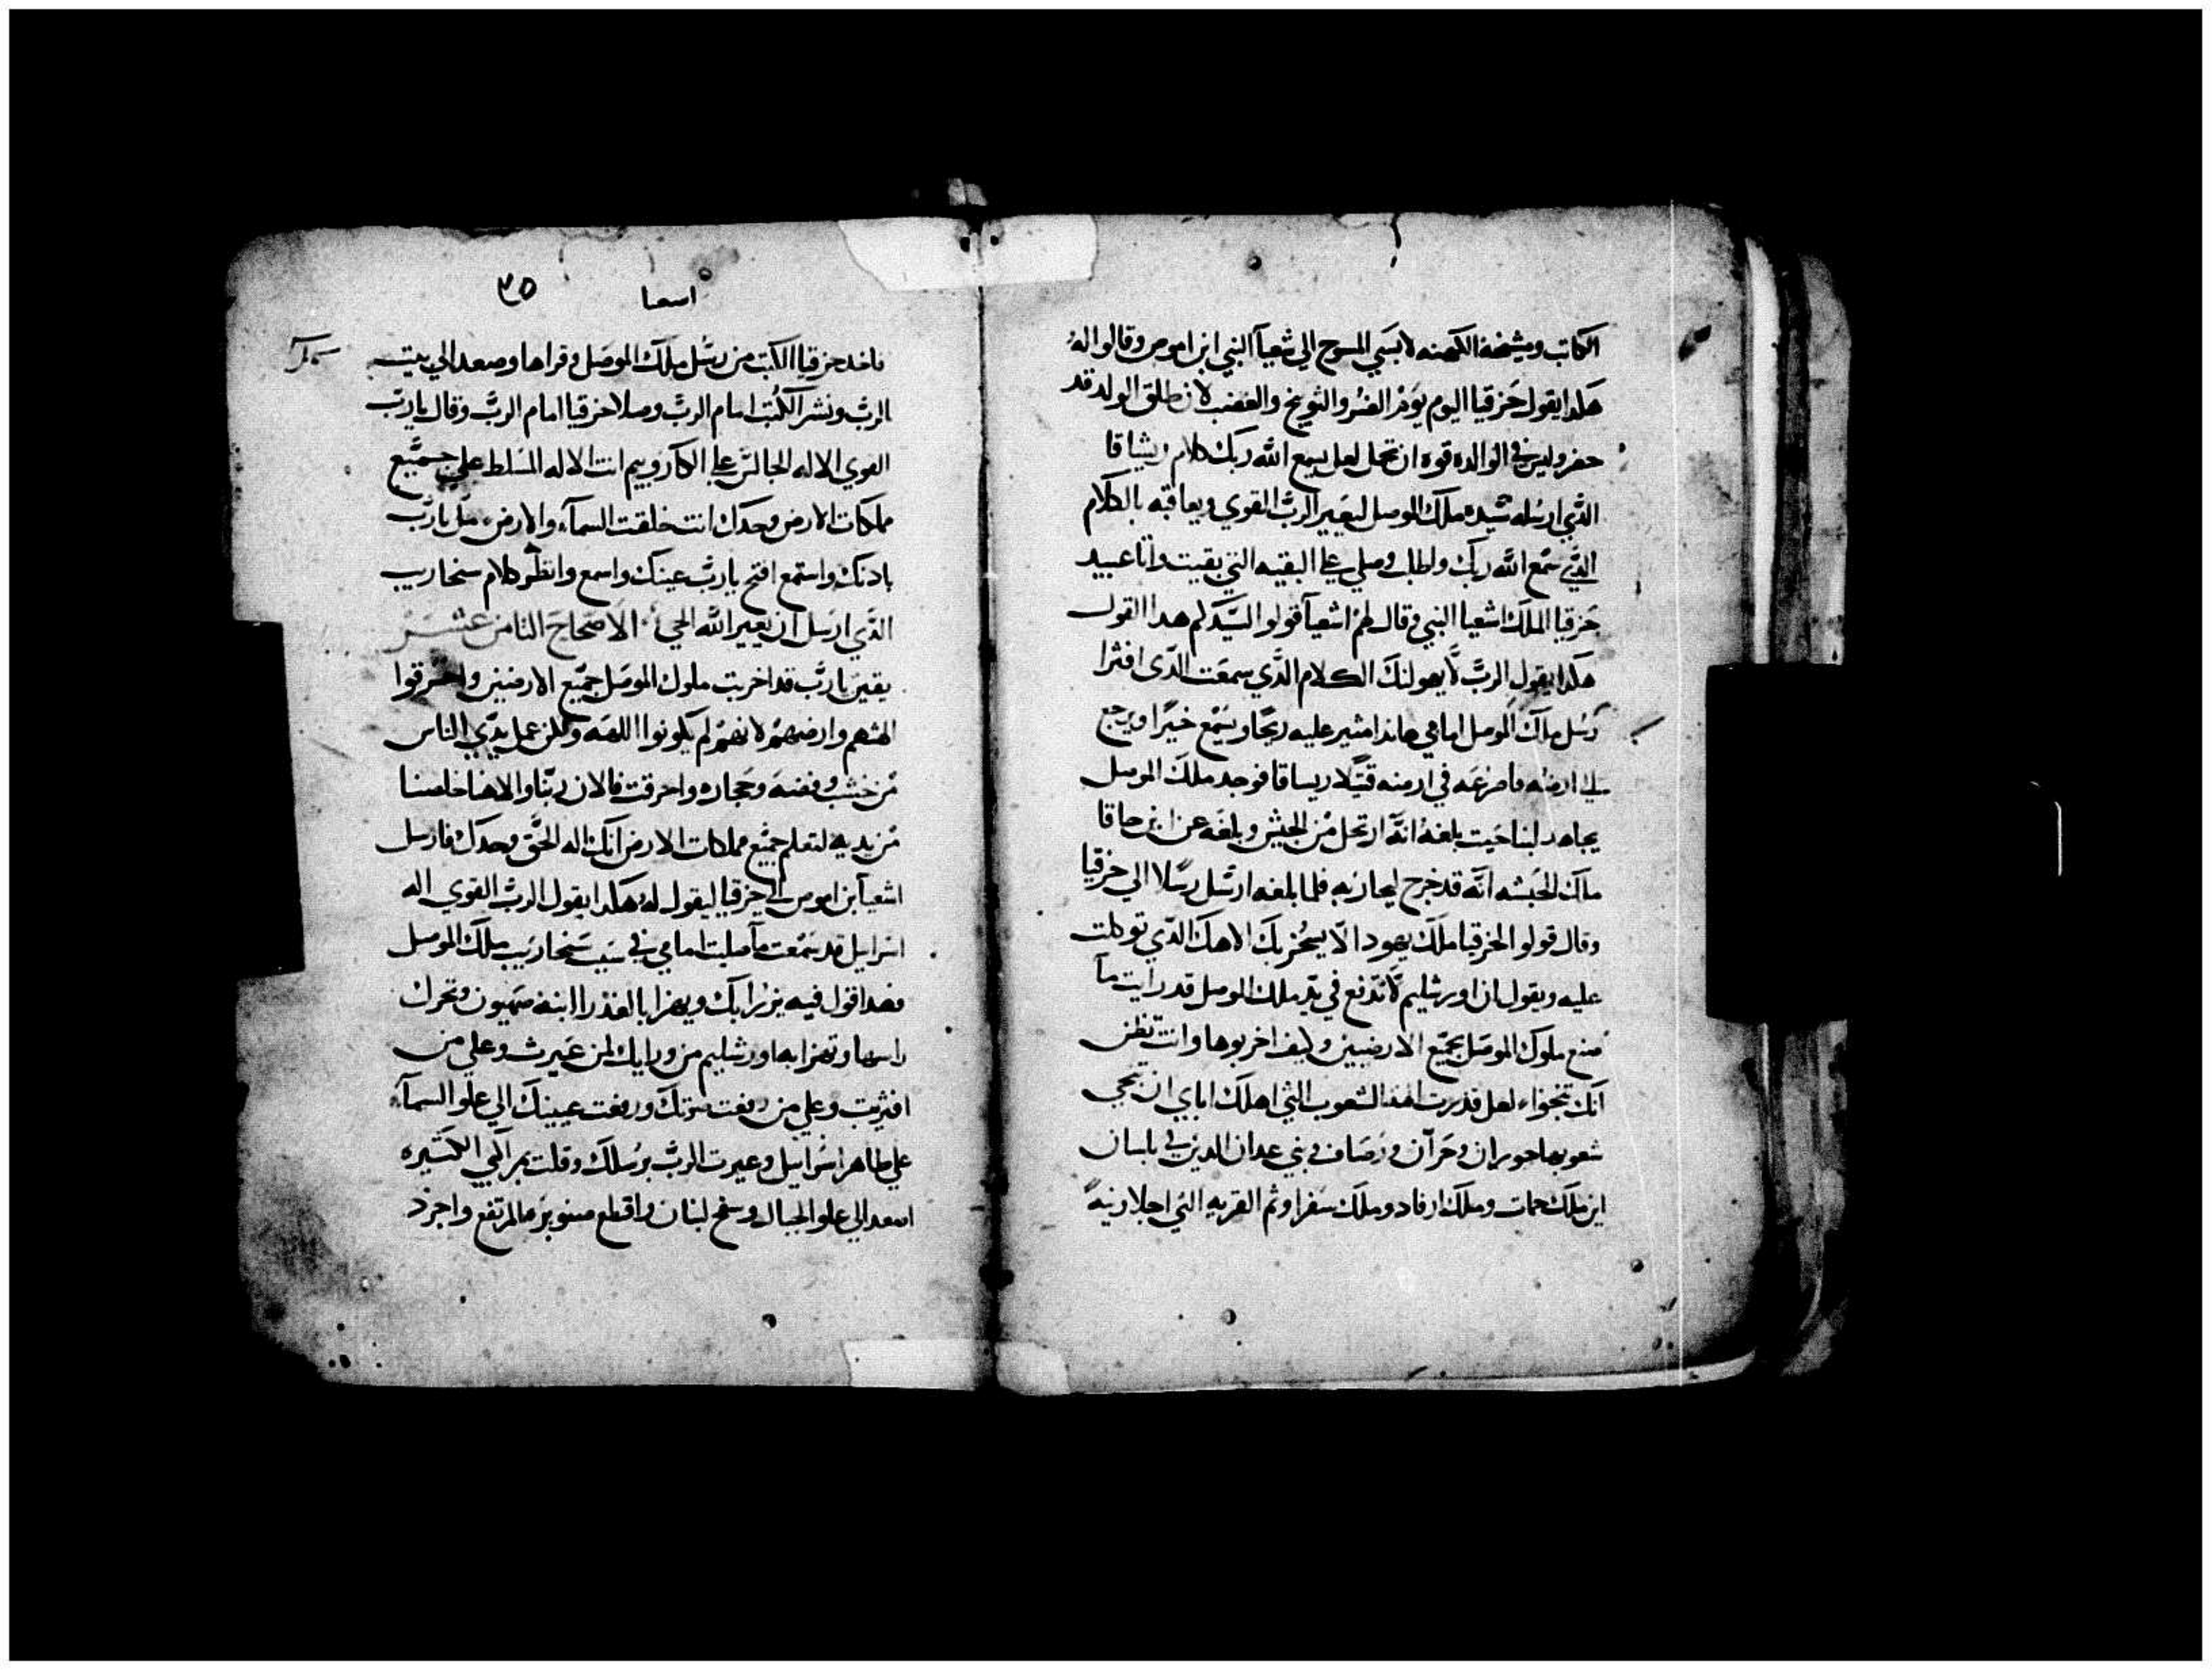 الكاتب ومشيخة الكهنه لابسي المسوح الي شعيآ النبي ابن اموص وقالوا له
هكدا يقول حزقيا اليوم يوم الضر والتوبيخ والغضب لان طلق الولد قد
حضر وليس في الوالده قوه ان تحمل لعل يسمع الله ربك كلام ربشاقا
الدي ارسله سيده ملك الموصل ليعير الرب القوي ويعاقبه بالكلام
الدي سمع الله ربك واطلب وصلي علي البقيه التي بقيت واتا عبيد
حزقيا الملك اشعيا النبي وقال لهم اشعيآ قولوا لسيدكم هدا القول
هكدا يقول الرب لا يهولنك الكلام الدي سمعت الدي افترا
رسل ملك الموصل امامي هاندا مثير عليه ريحا ويسمع خبرا ويرجع
الي ارضه فاصرعه في ارضه قتيلا ربساقا فوجد ملك الموصل
يجاهد لبنا حيت بلغه انه ارتحل من الجيش وبلغه عن ابن حاقا
ملك الحبشه انه قد خرج ليحاربه فلما بلغه ارسل رسلا الي حزقيا
وقال قولوا لحزقيا ملك يهودا لا يسخر بك الاهك الدي توكلت
عليه ويقول ان اورشليم لا تدفع في يد ملك الموصل قد رايت ما
صنع ملوك الموصل بجميع الارضيين وكيف اخربوها وانت تظن
انك تنجوا لعل قدرت الهة الشعوب التي اهلك اباي ان تنجي
شعوبها حوران وحران ورصاف وبني عدان الدين في بلسان
اين ملك حمات وملك ارفاد وملك سفراوثم القريه التي اجلا
اسعيا ٣٥
فاخد حزقيا الكتب من رسل ملك الموصل وقراها وصعد الي بيت
الرب ونشر الكتب امام الرب وصلا حزقيا امام الرب وقال يا رب
القوي الاله الجالس علي الكاروبيم انت الاله المسلط علي جميع
مملكات الارض وحدك انت خلقت السمآء والارض مل يا رب
بادنك واستمع افتح يا رب عينك واسمع وانظر كلام سنحاريب
الدي ارسل ان يعير الله الحي الاصحاح التامن عشر
يقين يا رب قد اخربت ملوك الموصل جميع الارضين واحرقوا
الهتهم وارضهم لانهم لم يكونوا اللهه ولكن عمل يدي الناس
من خشب وفضه وحجاره واحرقت فالان ربنا والاهنا خلصنا
من يديه لتعلم جميع مملكات الارض انك اله الحق وحدك فارسل
اشعيا بن اموص الي حزقيا ليقول له هكدا يقول الرب القوي اله
اسراييل قد سمعت ما صليت امامي في سبب سنحاريب ملك الموصل
فهدا قول فيه يزرا بك ويهزا بالعذرا ابنة صهيون وتحرك
راسها وتهزا بها اورشليم من ورايك لمن عيرت وعلي من
افتريت وعلي من رفعت صوتك ورفعت عينيك الي علو السمآء
علي طاهر اسراييل وعيرت الرب برسلك وقلت بمراكبي الكتيره
اصعد الي علو الجبال وسفح لبنان واقطع صنوبرها المرتفع واجرد